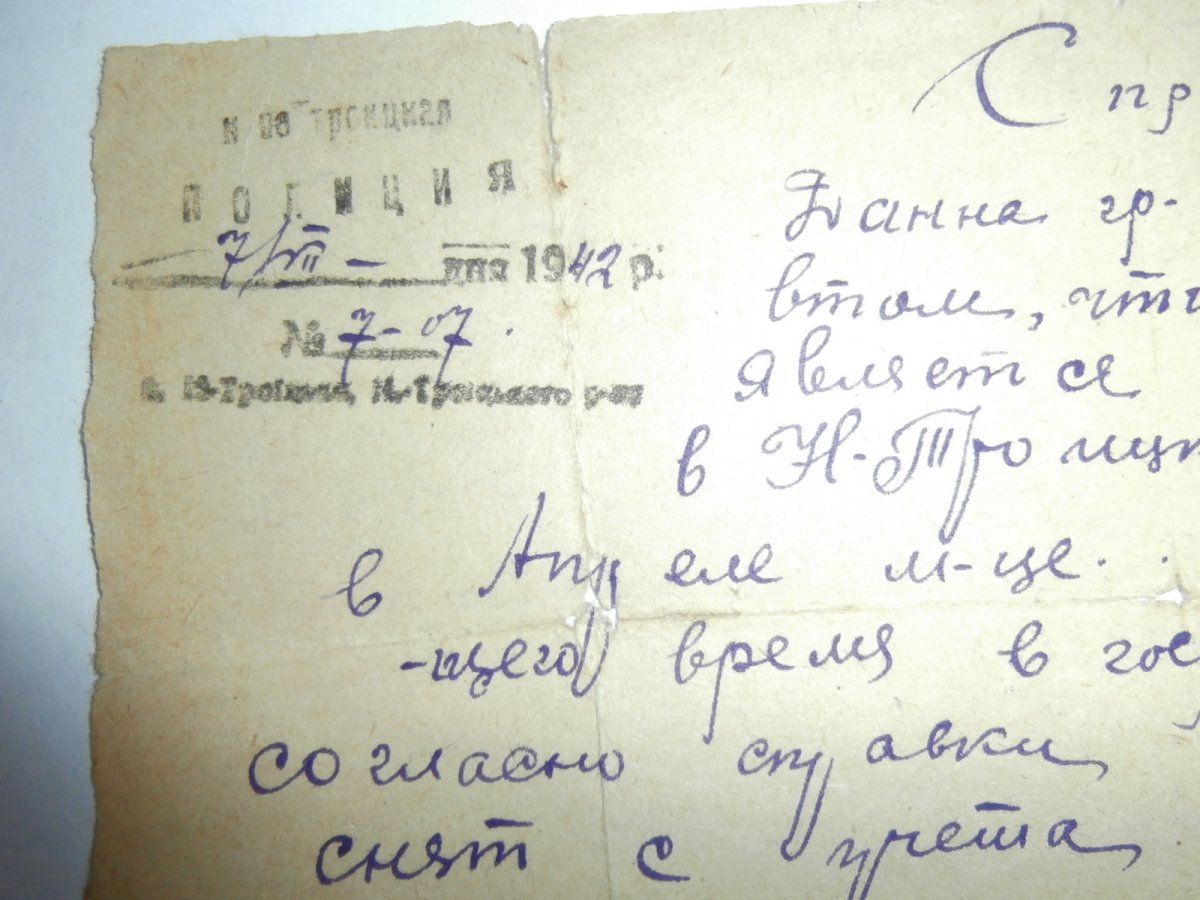 Ново троицкая
ПОЛИЦИЯ
7/VII - дня 1942 р.
№ 7-07.
Н-Троицкое, Н-Троицкого р-на
Спр
Данна гр-
в том, что
является
в Н-Троицк
в Апреле м-це.
-щего время в гос
согласно справки
снят с учета